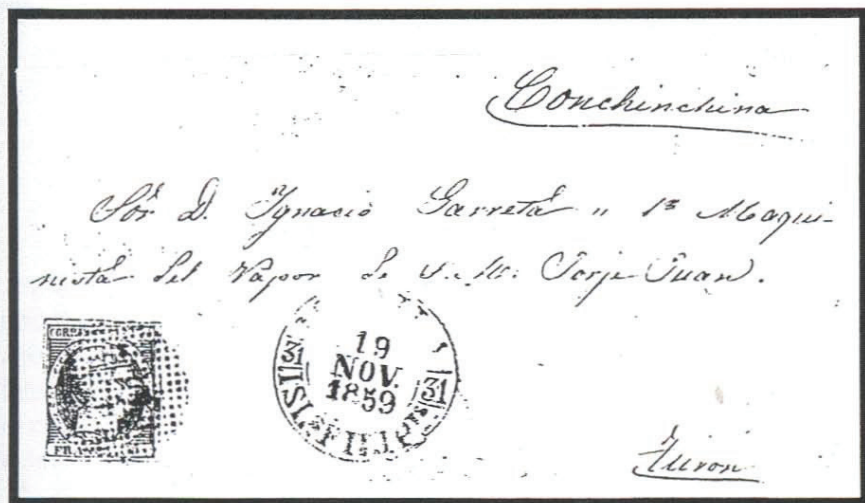 Conchinchina
Sor. D. Ygnacio Garreta " 1er Maqui-
nista del Vapor de S. M. Jorje Juan.
CORR
FRA
19
NOV.
1859
31
31
FILIP
ISL
Turon